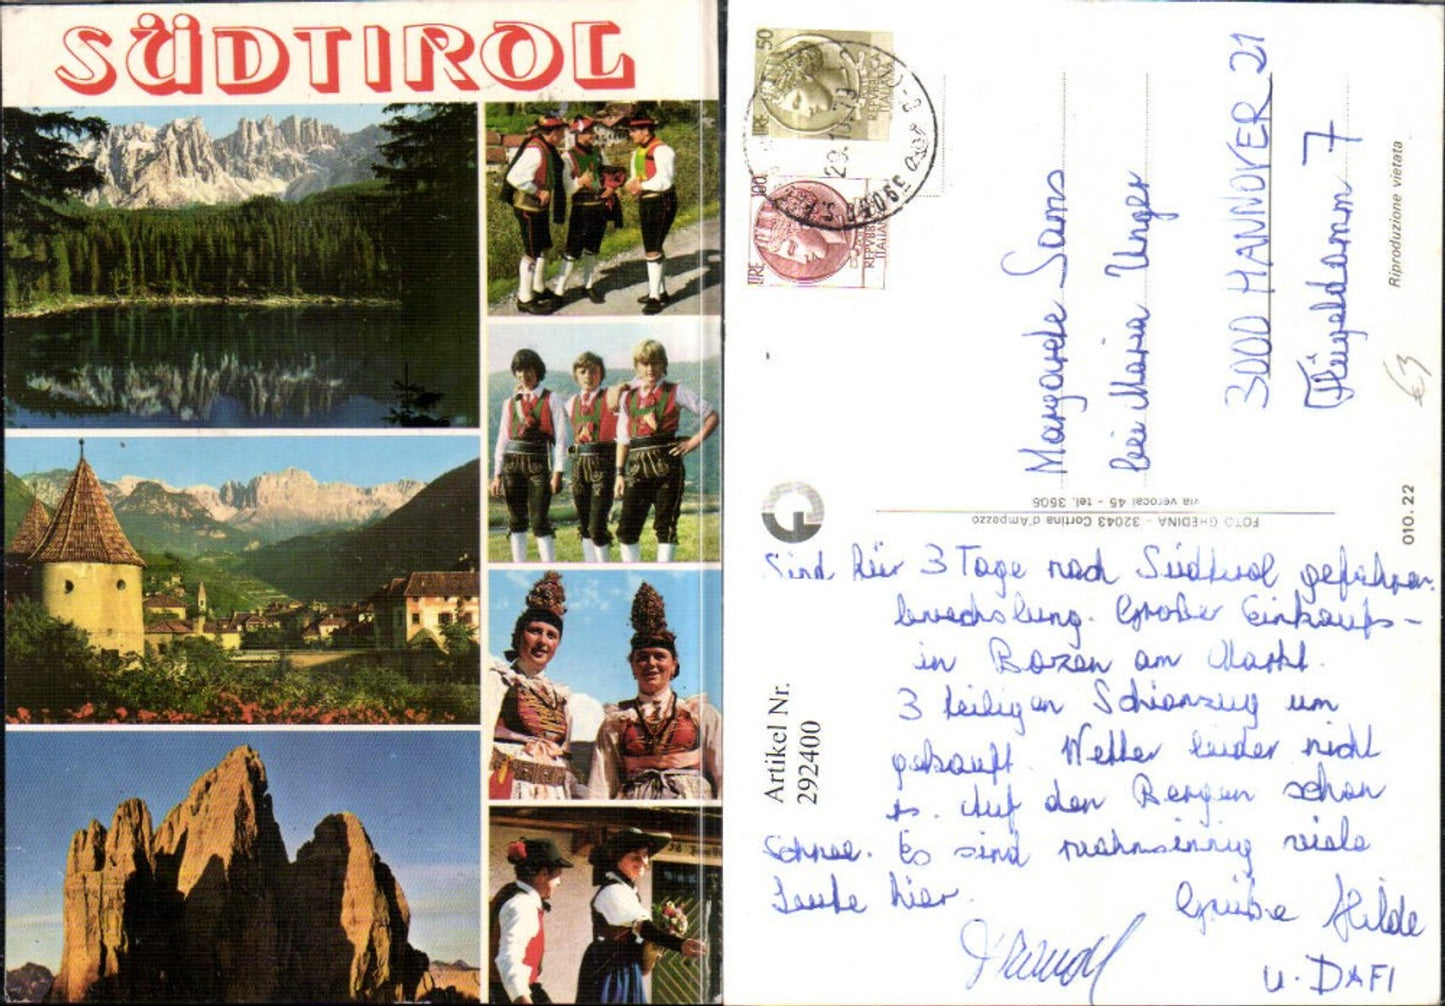 SÜDTIROL
50
LIRE
REPVBBLICA
ITALIANA
100
LIRE
REPVBBLICA
ITALIANA
39040
Margarete Sans
bei Maria Unger
3000 HANNOVER 21
Hügeldamm 7
Riproduzione vietata
€3
010.22
FOTO GHEDINA - 32043 Cortina d'Ampezzo
via verocai 45 - tel. 3505
Artikel Nr.
292400
Sind für 3 Tage nach Südtirol gefahren.
Großer Einkaufs-
in Bozen am Markt.
3 teiligen Schianzug um
gekauft. Wetter leider nicht
Auf den Bergen schon
Schnee. Es sind wahnsinnig viele
Leute hier.
Grüße Hilde
u. DAFI